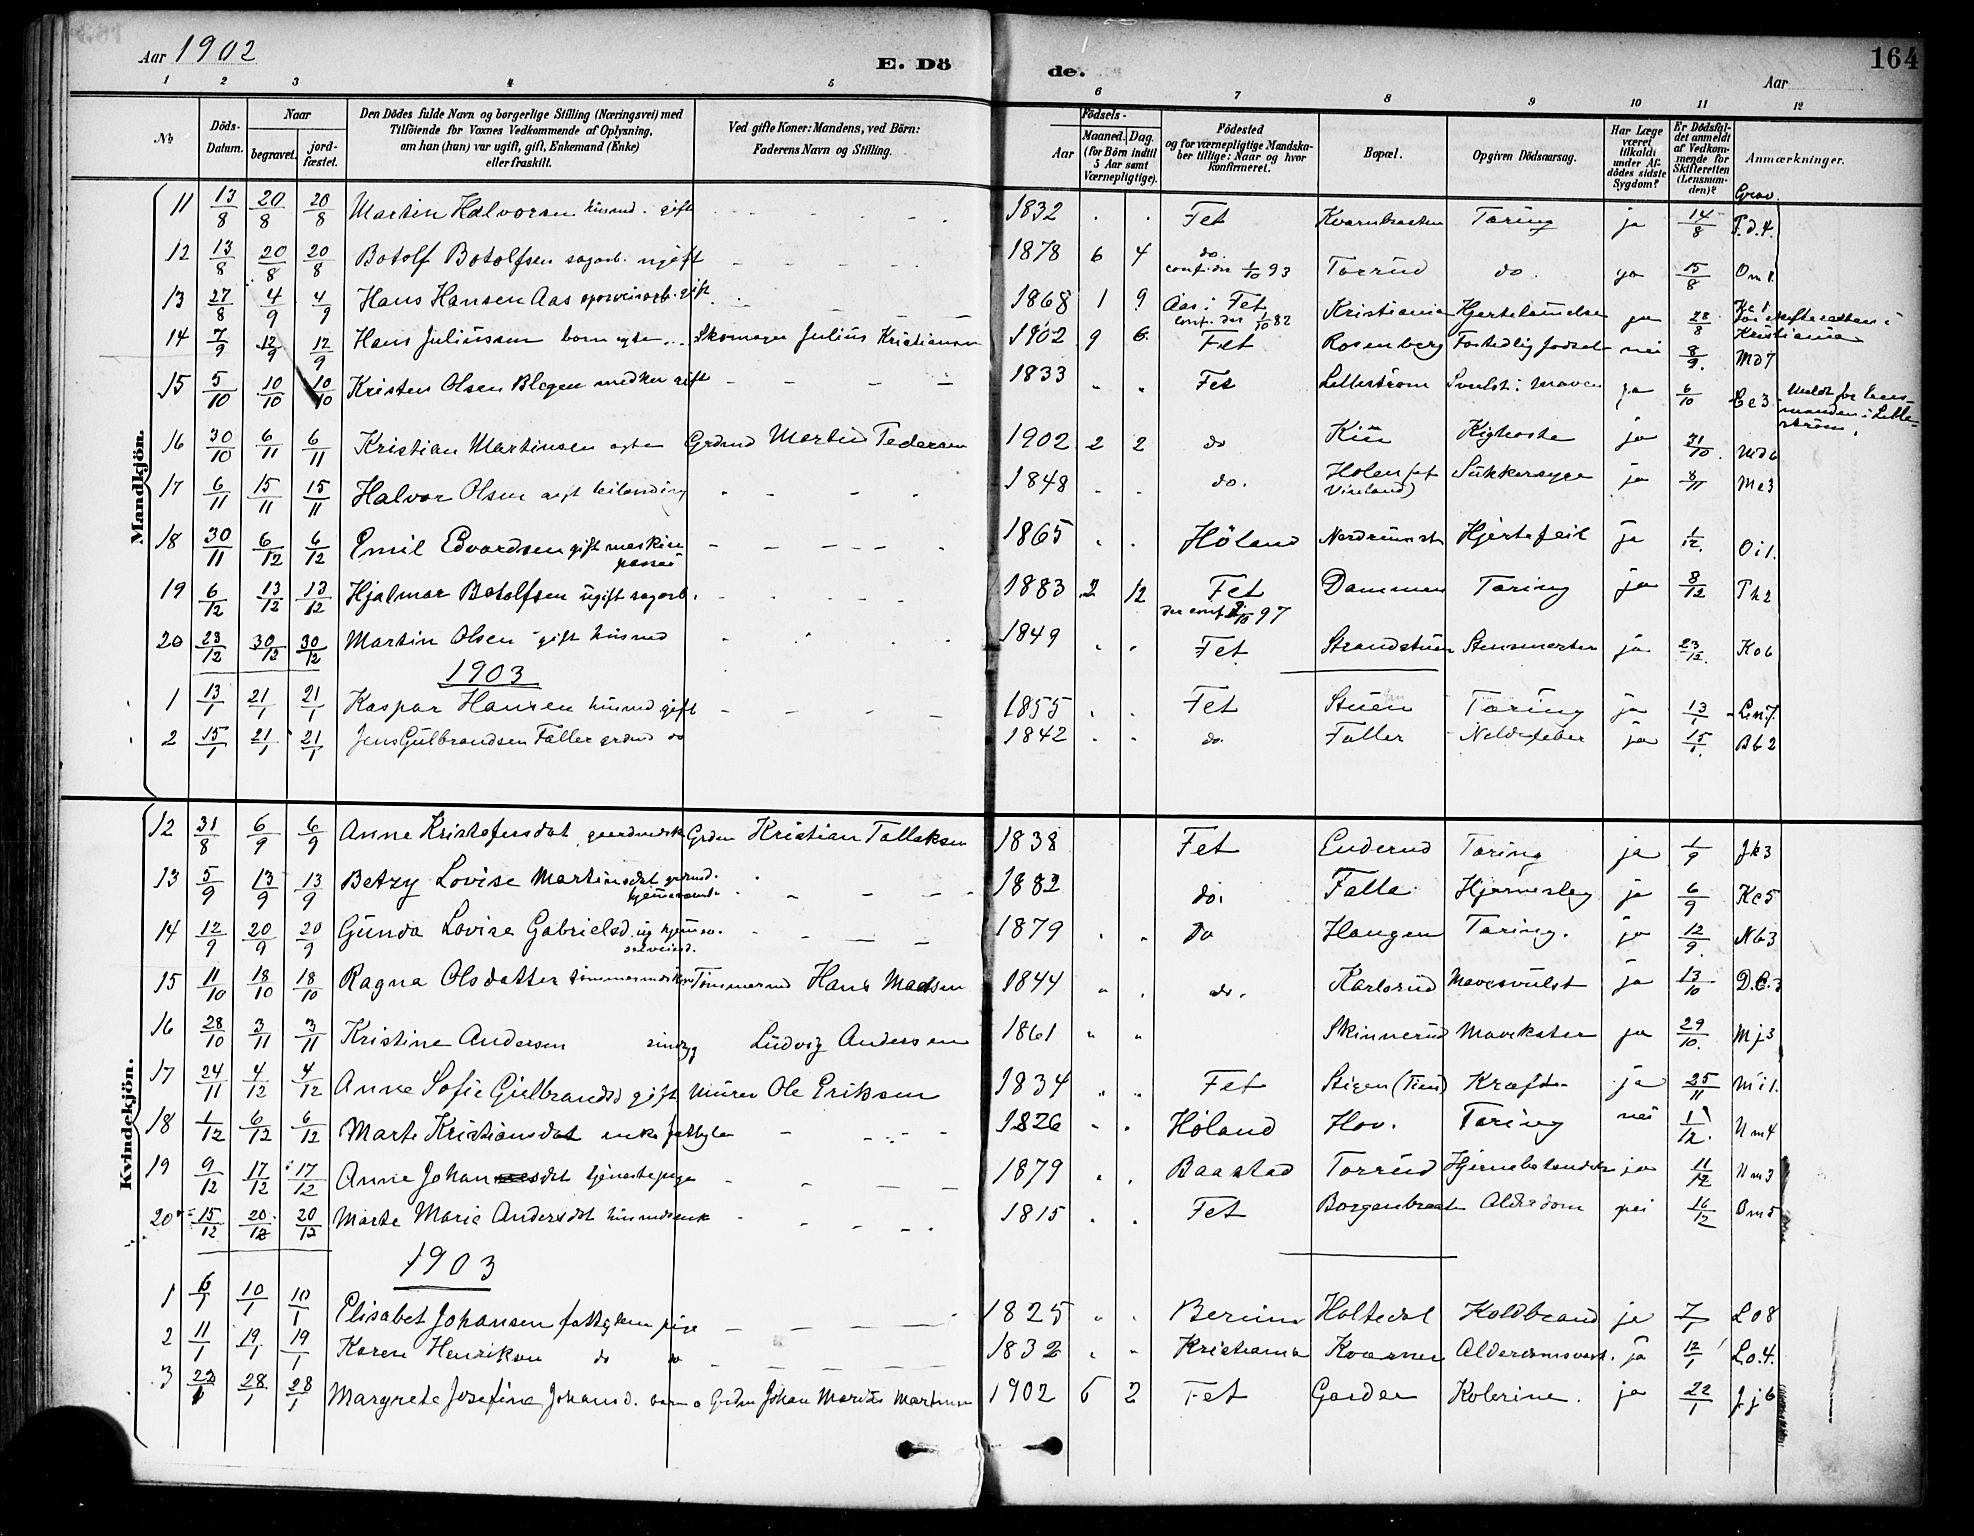 Aar 1902
E. Dö de.
Aar
164
1 2 3 4 5 6 7 8 9 10 11 12
No
Döds-Datum.
Naar
begravet.
jord-fæstet.
Den Dödes fulde Navn og borgerlige Stilling (Næringsvei) med
Tilföiende for Voxnes Vedkommende af Oplysning,
om han (hun) var ugift, gift, Enkemand (Enke)
eller fraskilt.
Ved gifte Koner: Mandens, ved Börn:
Faderens Navn og Stilling.
Födsels-
Aar
Maaned. Dag.
(for Börn indtil
5 Aar samt
Værnepligtige).
Födested
og for værnepligtige Mandska-
ber tillige: Naar og hvor
konfirmeret.
Bopæl.
Opgiven Dödsaarsag.
Har Læge
været
tilkaldt
under Af-
dödes sidste
Sygdom?
Er Dödsfal-
det anmeldt
af Vedkom-
mende for
Skifteretten
(Lensman-
den)?
Anmærkninger.
Grav.
Mandkjön.
11 13/8 20/8 20/8 Martin Halvorsen husmd. gift 1832 Fet Kvarnbraaten Tæring ja 14/8 F.d.4.
12 13/8 20/8 20/8 Botolf Botolfsen sagarb. ugift 1878 6 4 do. conf. der 1/10 93 Torrud do. ja 15/8 Om1
13 27/8 4/9 4/9 Hans Hansen Aas sporveisarb. gift 1868 1 9 Aas i Fet conf. der 1/10 82 Kristiania Hjertelammelse ja 28/8 for skifteretten i Kristiania
14 7/9 12/9 12/9 Hans Juliussen barn egte Skomager Julius Kristiansen 1902 9 6 Fet Rosenberg For tidlig fødsel nei 8/9. Md7
15 5/10 10/10 10/10 Kristen Olsen Blegen gift 1833 Fet Lillestrøm Svulst i Maven ja 6/10 Cc3 Meldt for lens-
manden i Lille-
strøm.
16 30/10 6/11 6/11 Kristian Martinsen egte Grdmd Martin Pedersen 1902 2 2 do Kiu Kighoste ja 31/10. Md6
17 6/11 15/11 15/11 Halvor Olsen 1848 do. Holen (et Vineland) Sukkersyge ja 8/11 Me3
18 30/11 6/12 6/12 Emil Edvardsen gift maskin
passer 1865 Höland Hjertefeil ja 1/12. Oi1.
19 6/12 13/12 13/12 Hjalmar Botolfsen ugift sagarb. 1883 2 12 Fet der conf. 97 Dammen Tæring ja 8/12 Ph2
20 23/12 30/12 30/12 Martin Olsen gift husmd 1849 Fet Strandstuen Stensmerter ja 23/12. Ko6
1903
1 13/1 21/1 21/1 Kaspar Hansen husmd gift 1855 Fet Stuen Tæring ja 13/1
2 15/1 21/1 21/1 Jens Gulbrandsen Faller grdmd do 1842 do. Faller Neldefeber ja 15/1. Bb2
Kvindekjön.
12 31/8 6/9 6/9 Anne Kristofersdat. gaardmdsk Grdm Kristian Tollefsen 1838 Fet Enderud Tæring ja 1/9 Jk3
13 5/9 13/9 13/9 Betzy Lovise Martinsdat. grdmd. 1882 do. Falla Hjerneslag ja 6/9 Kc5
14 12/9 20/9 20/9 Gunda Lovise Gabrielsd. ug 1879 Do Haugen Tæring. ja 12/9. Nb3
15 11/10 18/10 18/10 Ragna Olsdatter tømmermdsk. Tømmermd Hans Madsen 1844 do. Karlsrud Mavesvulst ja 13/10 D.C.3
16 28/10 3/11 3/11 Kristine Andersen sindsyg Ludvig Andersen 1861 Skinnerud Mavekatar ja 29/10. Mj3
17 24/11 4/12 4/12 Anne Sofie Gulbrandsd gift Murer Ole Eriksen 1834 Fet Stigen Kræft ja 25/11 Mi1.
18 1/12 6/12 6/12 Marte Kristiansdat enke fattiglem 1826 Höland Hov. Tæring nei 1/12. Um4
19 9/12 17/12 17/12 Anne Johannesdt tjenestepige 1879 Baastad Torrud Hjernebetændelse ja 11/12 Um3
20 15/12 20/12 20/12 Marte Marie Andersdat husmdsenk 1815 Fet Borgenbraaten Alderdom nei 16/12 Om5
1903
1 6/1 10/1 10/1 Elisabet Johansen fattiglem pige 1825 Holtedal Koldbrand ja 7/1 Lo8
2 11/1 19/1 19/1 Karen Henriksen do do 1832 Kristiania Kværner Alderdomssvagh. ja 12/1 Lo.4.
3 22/1 28/1 28/1 Margrete Josefine Johansd. barn Grdm Johan Marius Martinsen 1902 5 2 Fet Garder Kolerine. ja 22/1 Jj6